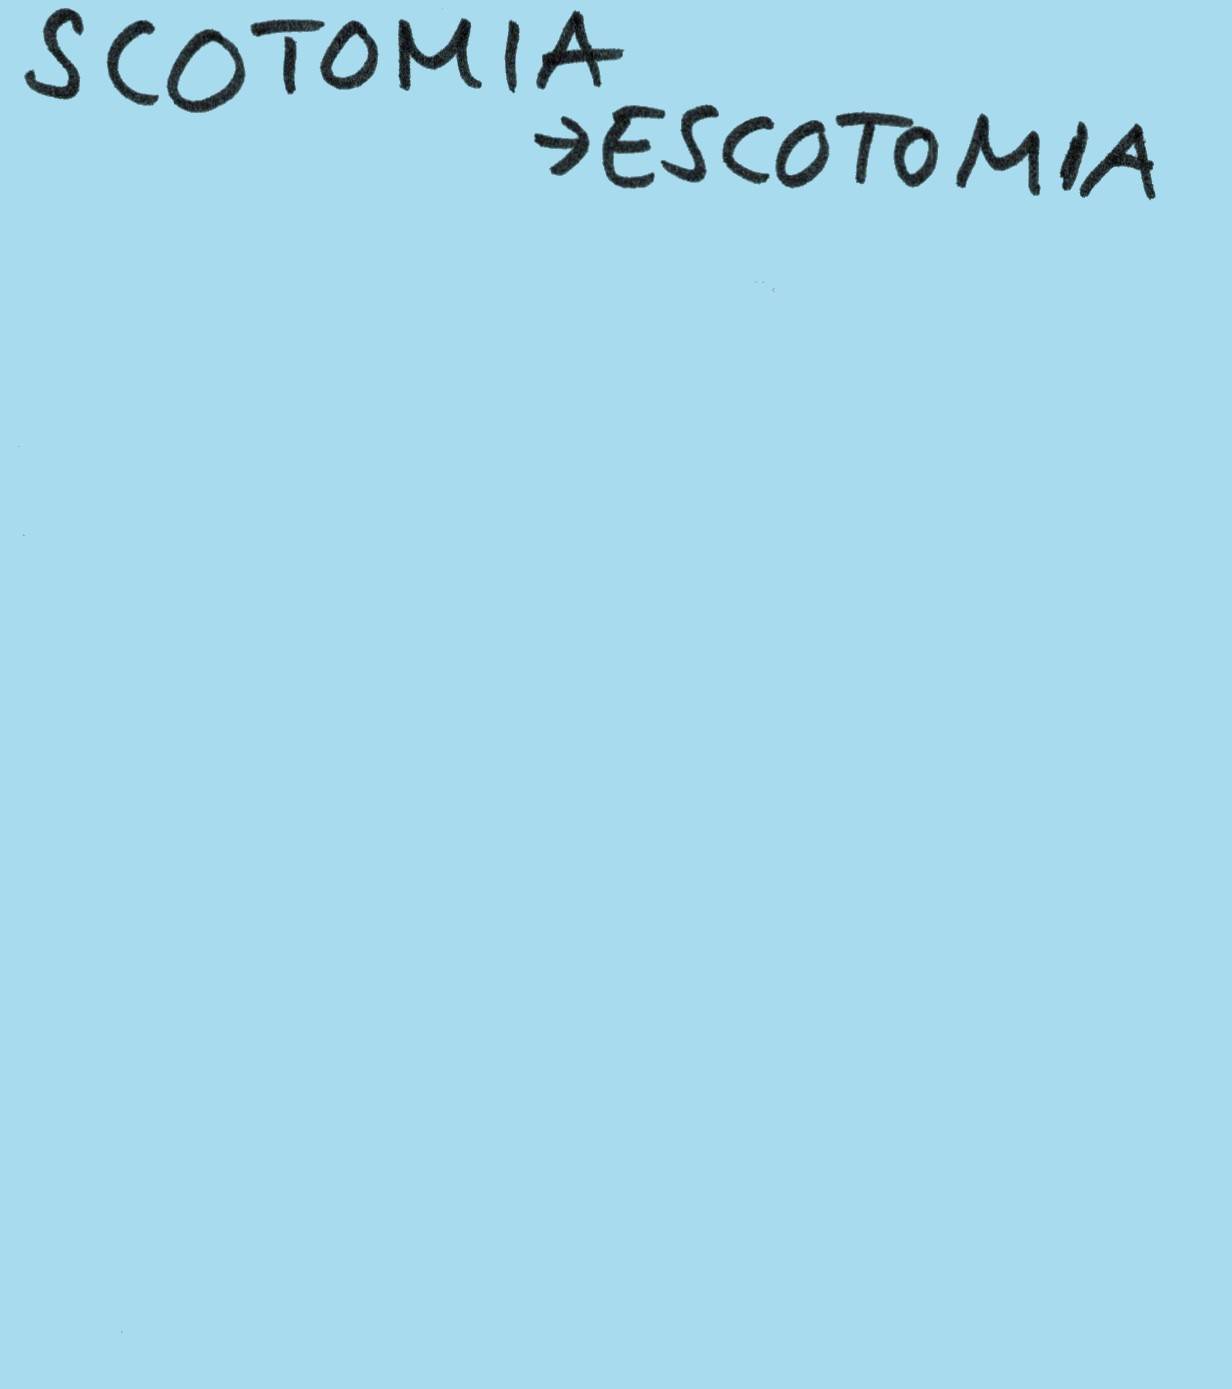 SCOTOMIA
→ESCOTOMIA